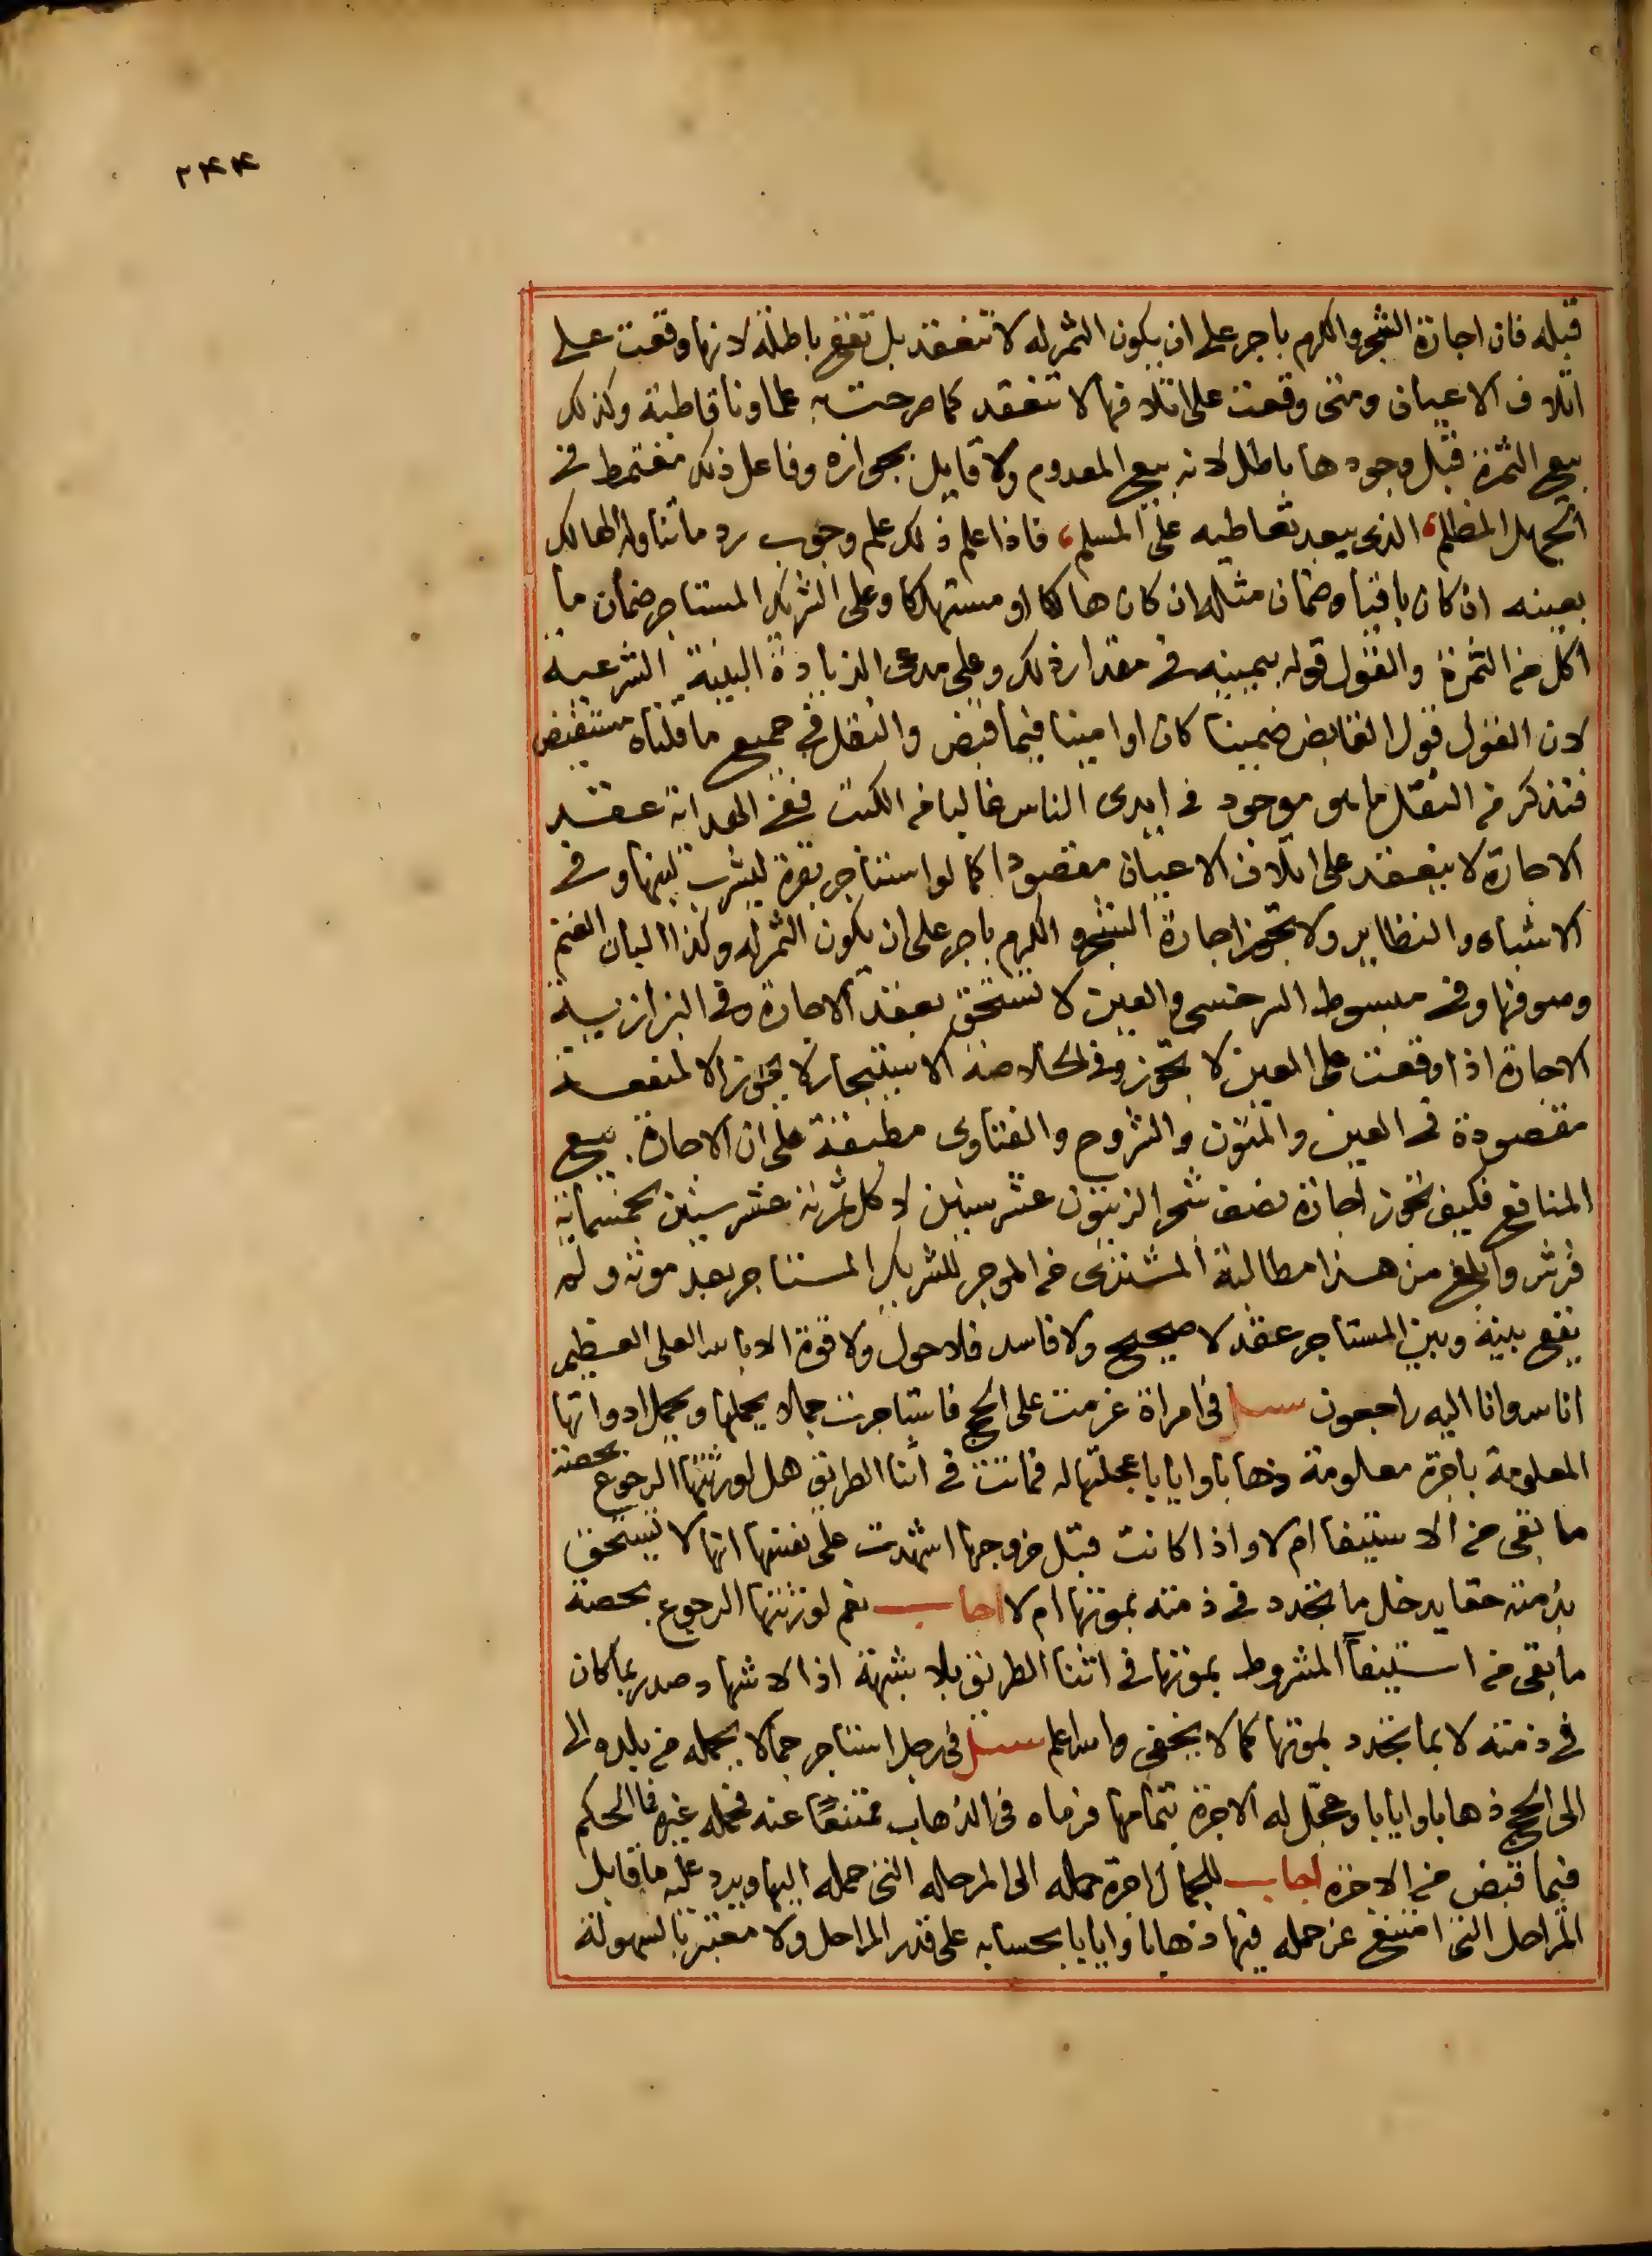 ٢٤٤
قبله فان اجارة الشجر والكرم باجر على ان يكون الثمر له لا تنعقد بل تقع باطلة لانها وقعت على
اتلاف الاعيان ومتى وقعت على اتلافها لا تنعقد كما صرحت به علماونا قاطبة وكذلك
بيع الثمرة قبل وجودها باطل لانه بيع المعدوم ولا قايل بجوازه وفاعل ذلك مغتمط في
الجهل المظلم، الذي يبعد تعاطيه على المسلم، فاذا علم ذلك علم وجوب رد ما تناوله المالك
بعينه ان كان باقيا وضمان مثله ان كان هالكا او مستهلكا وعلى الشريك المستاجر ضمان ما
اكل من الثمرة والقول قوله بيمينه في مقدار ذلك وعلى مدعى الزيادة البينة الشرعية
لان القول قول القابض ضمينا كان او امينا فيما قبض والنقل في جميع ما قلناه مستفيض
فنذكر من النقل ما هو موجود في ايدى الناس غالبا من الكتب ففي الهداية عقد
الاجارة لا ينعقد على اتلاف الاعيان مقصودا كما لو استاجر بقرة ليشرب لبنها وفي
الاشباه والنظاير ولا تجوز اجارة الشجر والكرم باجر على ان يكون الثمر له وكذا البان الغنم
وصوفها وفي مبسوط السرخسي والعين لا تستحق بعقد الاجارة وفي البزازية
الاجارة اذا وقعت على العين لا تجوز وفي الخلاصة الاستيجار لا يجوز الا لمنفعة
مقصودة في العين والمتون والشروح والفتاوى مطبقة على ان الاجارة بيع
المنافع فكيف تجوز اجارة نصف شجر الزيتون عشر سنين لاكل ثمرته عشر سنين بخمسماية
قرش وابلغ من هذا مطالبة المشترى من الموجر للشريك المستاجر بعد موته ولم
يقع بينه وبين المستاجر عقد لا صحيح ولا فاسد فلا حول ولا قوة الا بالله العلى العظيم
انا لله وانا اليه راجعون سئل في امراة عزمت على الحج فاستاجرت جمالا يحملها ويحمل ادواتها
المعلومة باجرة معلومة ذهابا وايابا عجلتها له فماتت في اثنا الطريق هل لورثتها الرجوع بحصة
ما بقى من الاستيفا ام لا واذا كانت قبل خروجها اشهدت على نفسها انها لا تستحق
بذمته حقا يدخل ما تجدد في ذمته بموتها ام لا اجاب نعم لورثتها الرجوع بحصة
ما بقى من استيفآ المشروط بموتها في اثنا الطريق بلا شبهة اذ الاشهاد صدر بما كان
في ذمته لا بما تجدد بموتها كما لا يخفى والله اعلم سئل في رجل استاجر جمالا يحمله من بلده الى
الى الحج ذهابا وايابا وعجل له الاجرة بتمامها فرماه في الذهاب ممتنعاً عنه فحمله غيره فما الحكم
فيما قبض من الاجرة اجاب للجمال اجرة حمله الى المرحلة التى حمله اليها ويرد عليه ما قابل
المراحل التى امتنع عن حمله فيها ذهابا وايابا بحسابه على قدر المراحل ولا معتبر بالسهولة